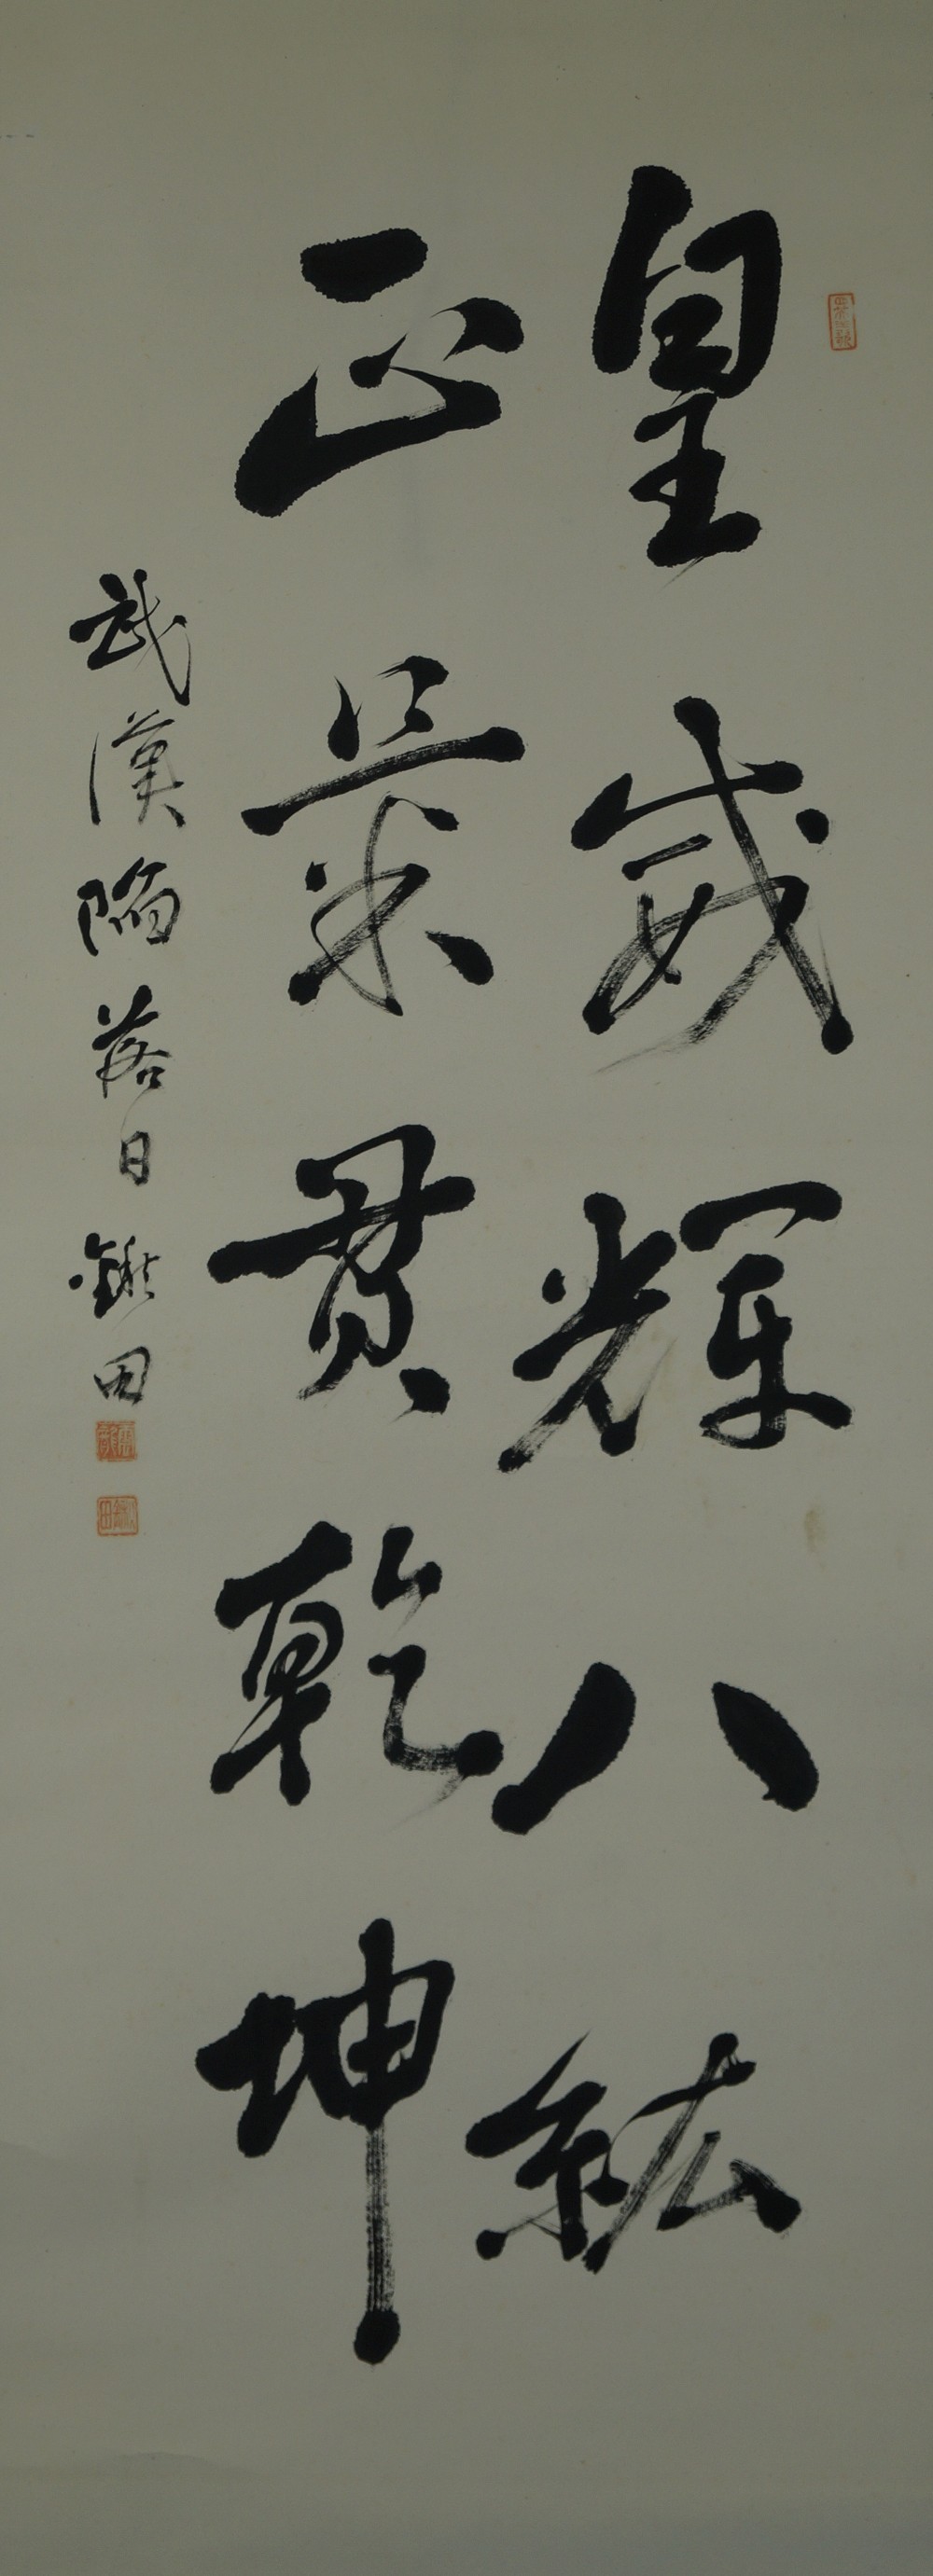 皇威輝八紘
正氣貫乾坤
武漢陥落日 鍬田